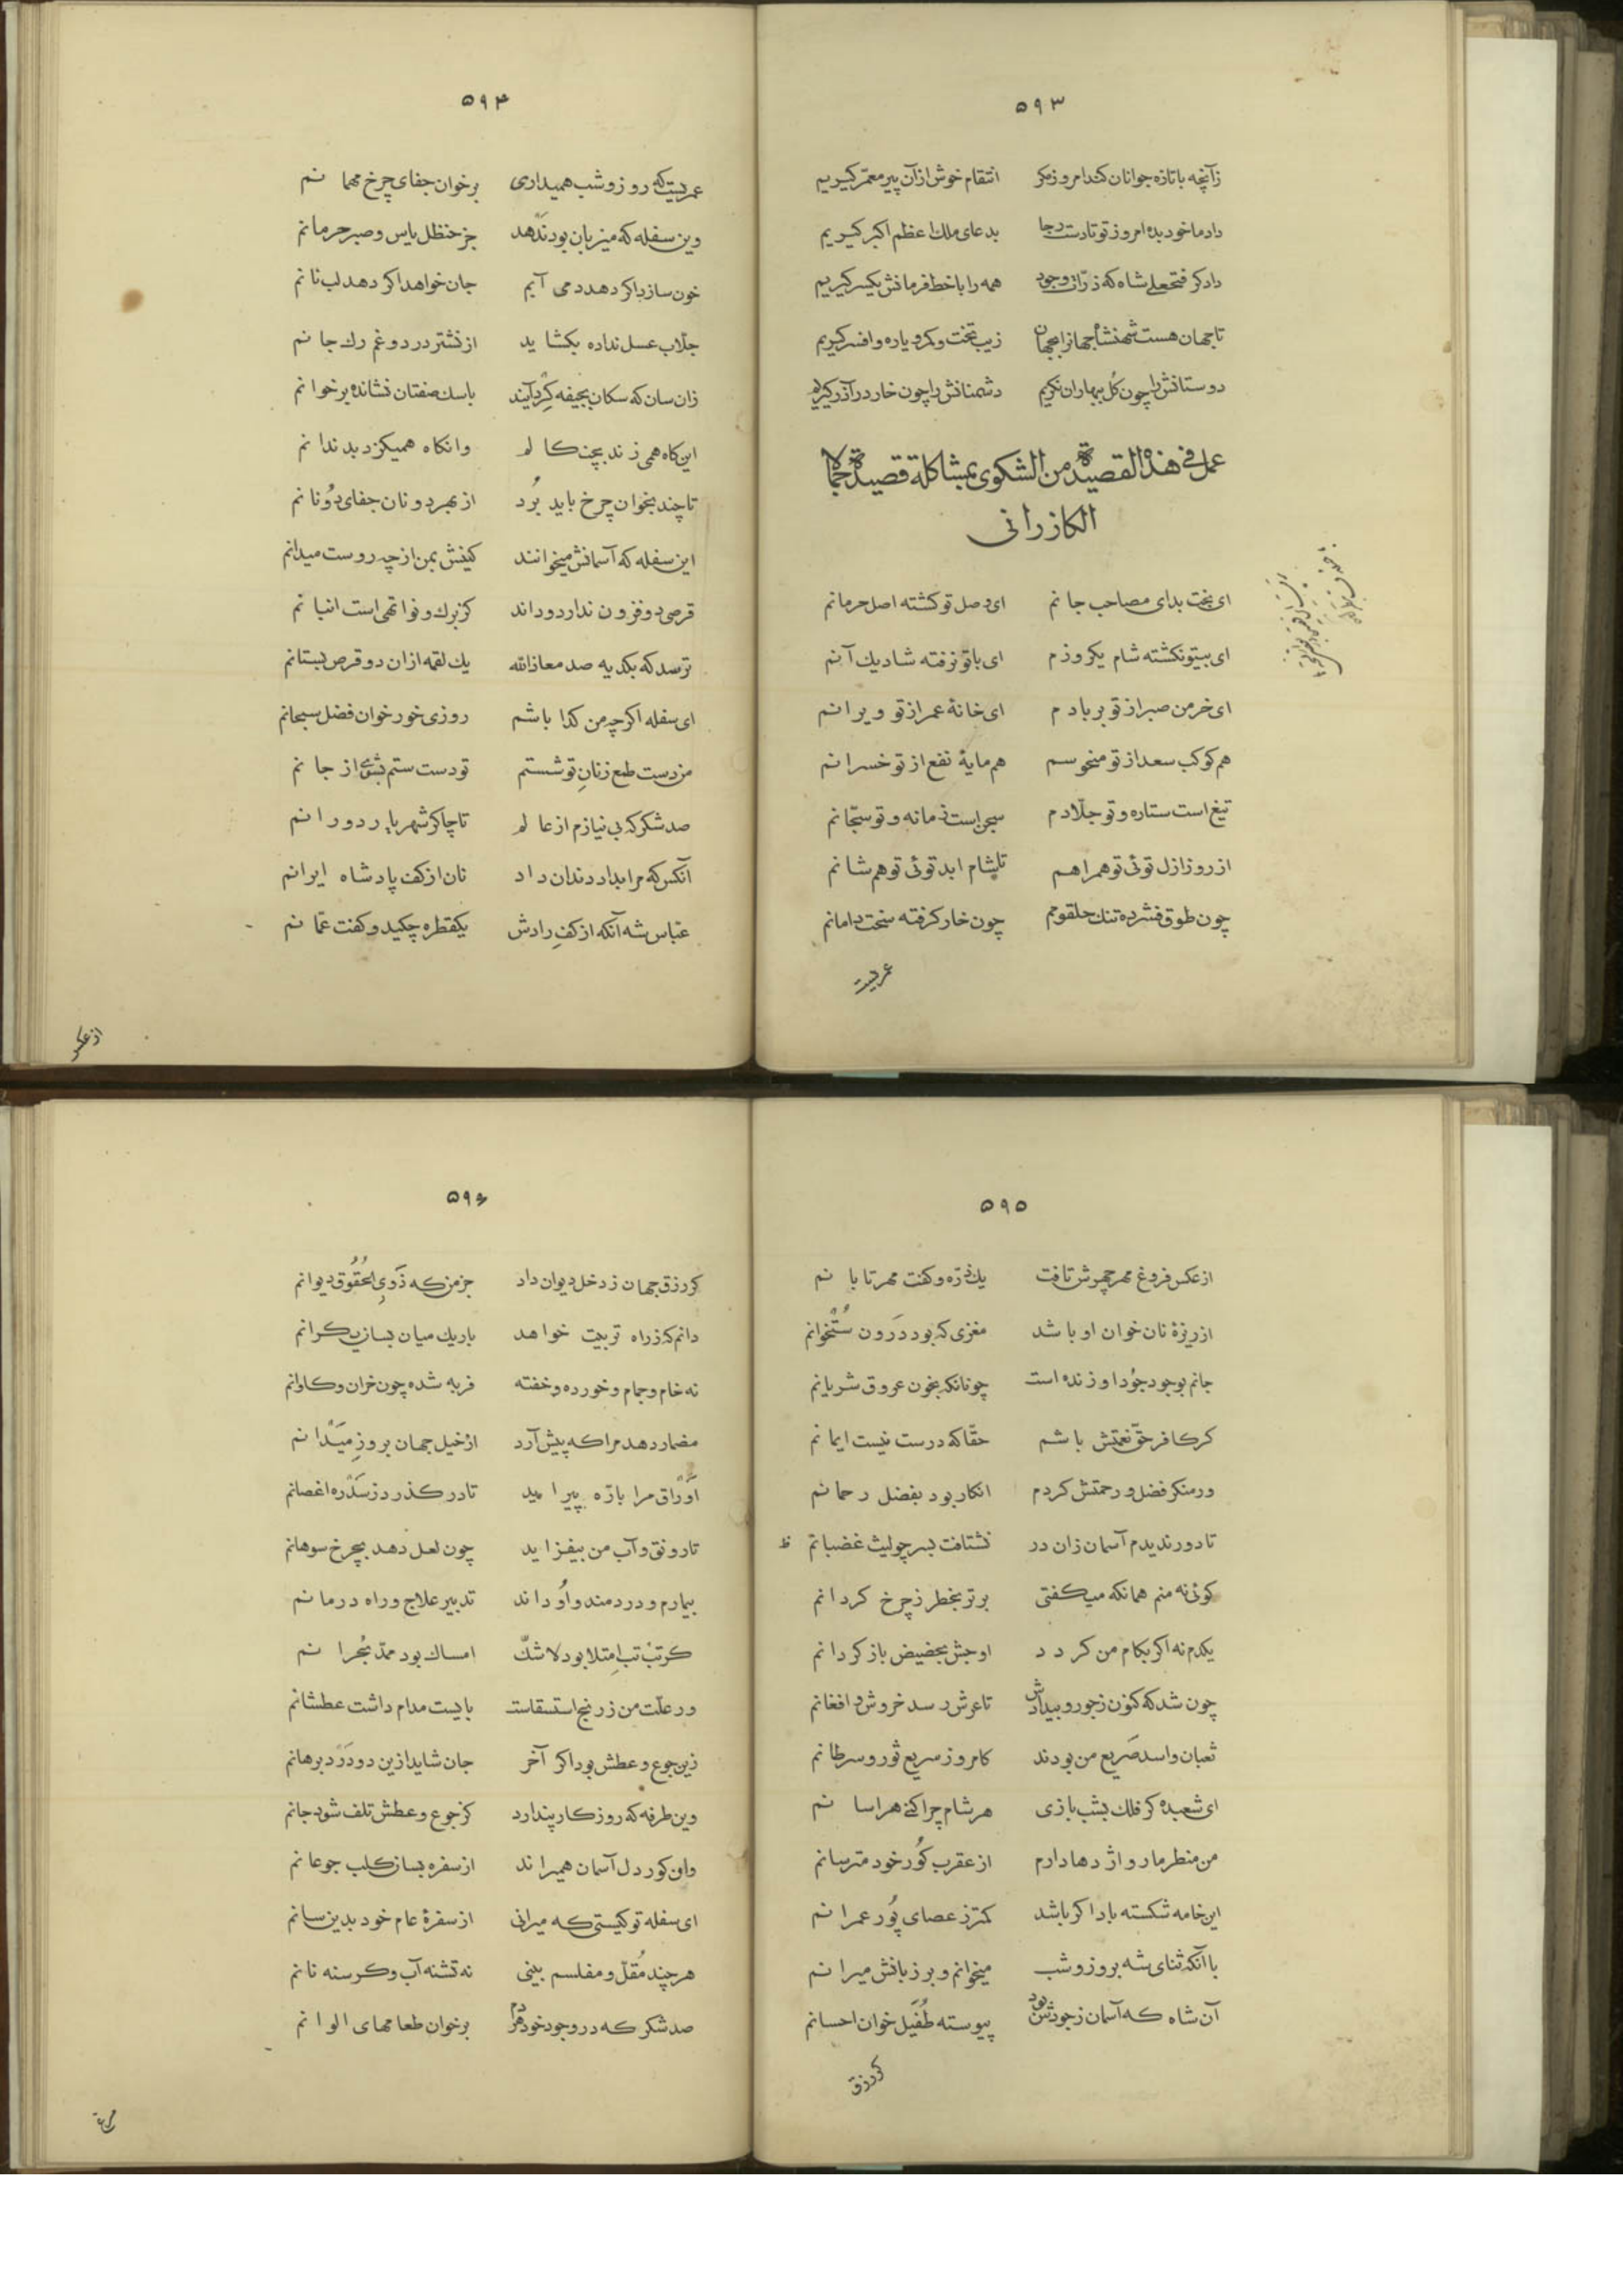 ۵۹۳
زآنچه با تازه جوانان کند امروز مکر انتقام خوش ازآن پیر معمّر کیریم
داد ما خود بده امروز تو تا دست دعا بدعای ملك اعظم اکبر کیریم
دادکر فتحعلی شاه که ذرّات وجود همه را با خط فرمانش یکسر کیریم
تا جهان هست شهنشاه جهانرا بجهان زیب تخت و کمر و یاره و افسر کیریم
دوستانش را چون کل ببهاران نکریم دشمنانش را چون خار در آذر کیریم
عمل فی هذه القصیدة من الشکوی بمشاکلة قصیدة جمال
الکازرانی
ای بخت بد ای مصاحب جانم ای وصل تو کشته اصل حرمانم
ای بیتو نکشته شام یکروزم ای باتو نرفته شاد یك آنم
ای خرمن صبر از تو بر بادم ای خانهٔ عمر از تو ویرانم
هم کوکب سعد از تو منحوسم هم مایهٔ نفع از تو خسرانم
تیغ است ستاره و تو جلّادم سجن است زمانه و تو سجّانم
از روز ازل توئی تو همراهم تا شام ابد توئی تو هم شانم
چون طوق فشرده تنك حلقومم چون خار کرفته سخت دامانم
عمریست
۵۹۴
عمریست که روز و شب همیداری برخوان جفای چرخ مهمانم
وین سفله که میزبان بود ندهد جز حنظل یاس و صبر حرمانم
خون سازد اکر دهد دمی آبم جان خواهد اکر دهد لب نانم
جلّاب عسل نداده بکشاید از نشتر درد و غم رك جانم
زان سان که سکان بجیفه کرد آیند با سك صفتان نشانده بر خوانم
این کاه همی زند بچنکالم وانکاه همیکزد بدندانم
تا چند بخوان چرخ باید بُرد از بهر دو نان جفای دونانم
این سفله که آسمانش میخوانند کینش بمن از چه روست میدانم
قرصی دو فزون ندارد و داند کز برك و نوا تهی است انبانم
ترسد که بکدیه صد معاذالله یك لقمه ازان دو قرص بستانم
ای سفله اکرچه من کدا باشم روزی خور خوان فضل سبحانم
من دست طمع ز نان تو شستم تو دست ستم بشوی از جانم
صد شکر که بی نیازم از عالم تا چاکر شهریار دورانم
آنکس که مرا بداد دندان داد نان از کف پادشاه ایرانم
عبّاس شه آنکه از کف رادش یکقطره چکید و کفت عمّانم
از عکس
۵۹۵
از عکس فروغ مهر چهرش تافت یك ذرّه و کفت مهر تابانم
از ریزهٔ نان خوان او باشد مغزی که بود درون ستخوانم
جانم بوجود جود او زنده است چونانکه بخون عروق شریانم
کر کافر حق نعمتش باشم حقّا که درست نیست ایمانم
ور منکر فضل و رحمتش کردم انکار بود بفضل رحمانم
تا دور ندیدم آسمان زان در نشتافت بسر چو لیث غضبانم
ظ
کوئی نه منم همانکه میکفتی برتر بخطر ز چرخ کردانم
یکدم نه اکر بکام من کردد اوجش بحضیض باز کردانم
چون شد که کنون ز جور و بیدادش تا عرش رسد خروش و افغانم
ثعبان و اسد صریع من بودند کامروز سریع ثور و سرطانم
ای شعبده کر فلك بشب بازی هر شام چرا کنی هراسانم
من منطر مار و اژدها دارم از عقرب کور خود مترسانم
این خامه شکسته باد اکر باشد کمتر ز عصای پور عمرانم
با آنکه ثنای شه بروز و شب میخوانم و بر زبانش میرانم
آن شاه که آسمان ز جودش بود پیوسته طُفَیل خوان احسانم
کو رزق
۵۹۶
کو رزق جهان ز دخل دیوان داد جز من که ذَوِی الحُقُوق دیوانم
دانم که ز راه تربیت خواهد باریك میان بسان یکرانم
نه خام و جمام و خورده و خفته فربه شده چون خران و کاوانم
مضمار دهد مرا که پیش آرد از خیل جهان بروز میدانم
اَوراق مرا بازه پیراید تا در کذرد ز سدره اغصانم
تا رونق و آب من بیفزاید چون لعل دهد بچرخ سوهانم
بیمارم و دردمند و او داند تدبیر علاج و راه درمانم
کر تب تب امتلا بود لاشكّ امساك بود ممدّ بُحرانم
ور علّت من ز رنج استسقاست بایست مدام داشت عطشانم
زین جوع و عطش بود اکر آخر جان شاید ازین دو درد برهانم
وین طرفه که روزکار پندارد کز جوع و عطش تلف شود جانم
وان کور دل آسمان همیراند از سفره بسان کلب جوعانم
ای سفله تو کیستی که میرانی از سفرهٔ عام خود بدین سانم
هر چند مُقلّ و مفلسم بینی نه تشنه آب و کرسنه نانم
صد شکر که در وجود خود هر دم برخوان طعامهای الوانم